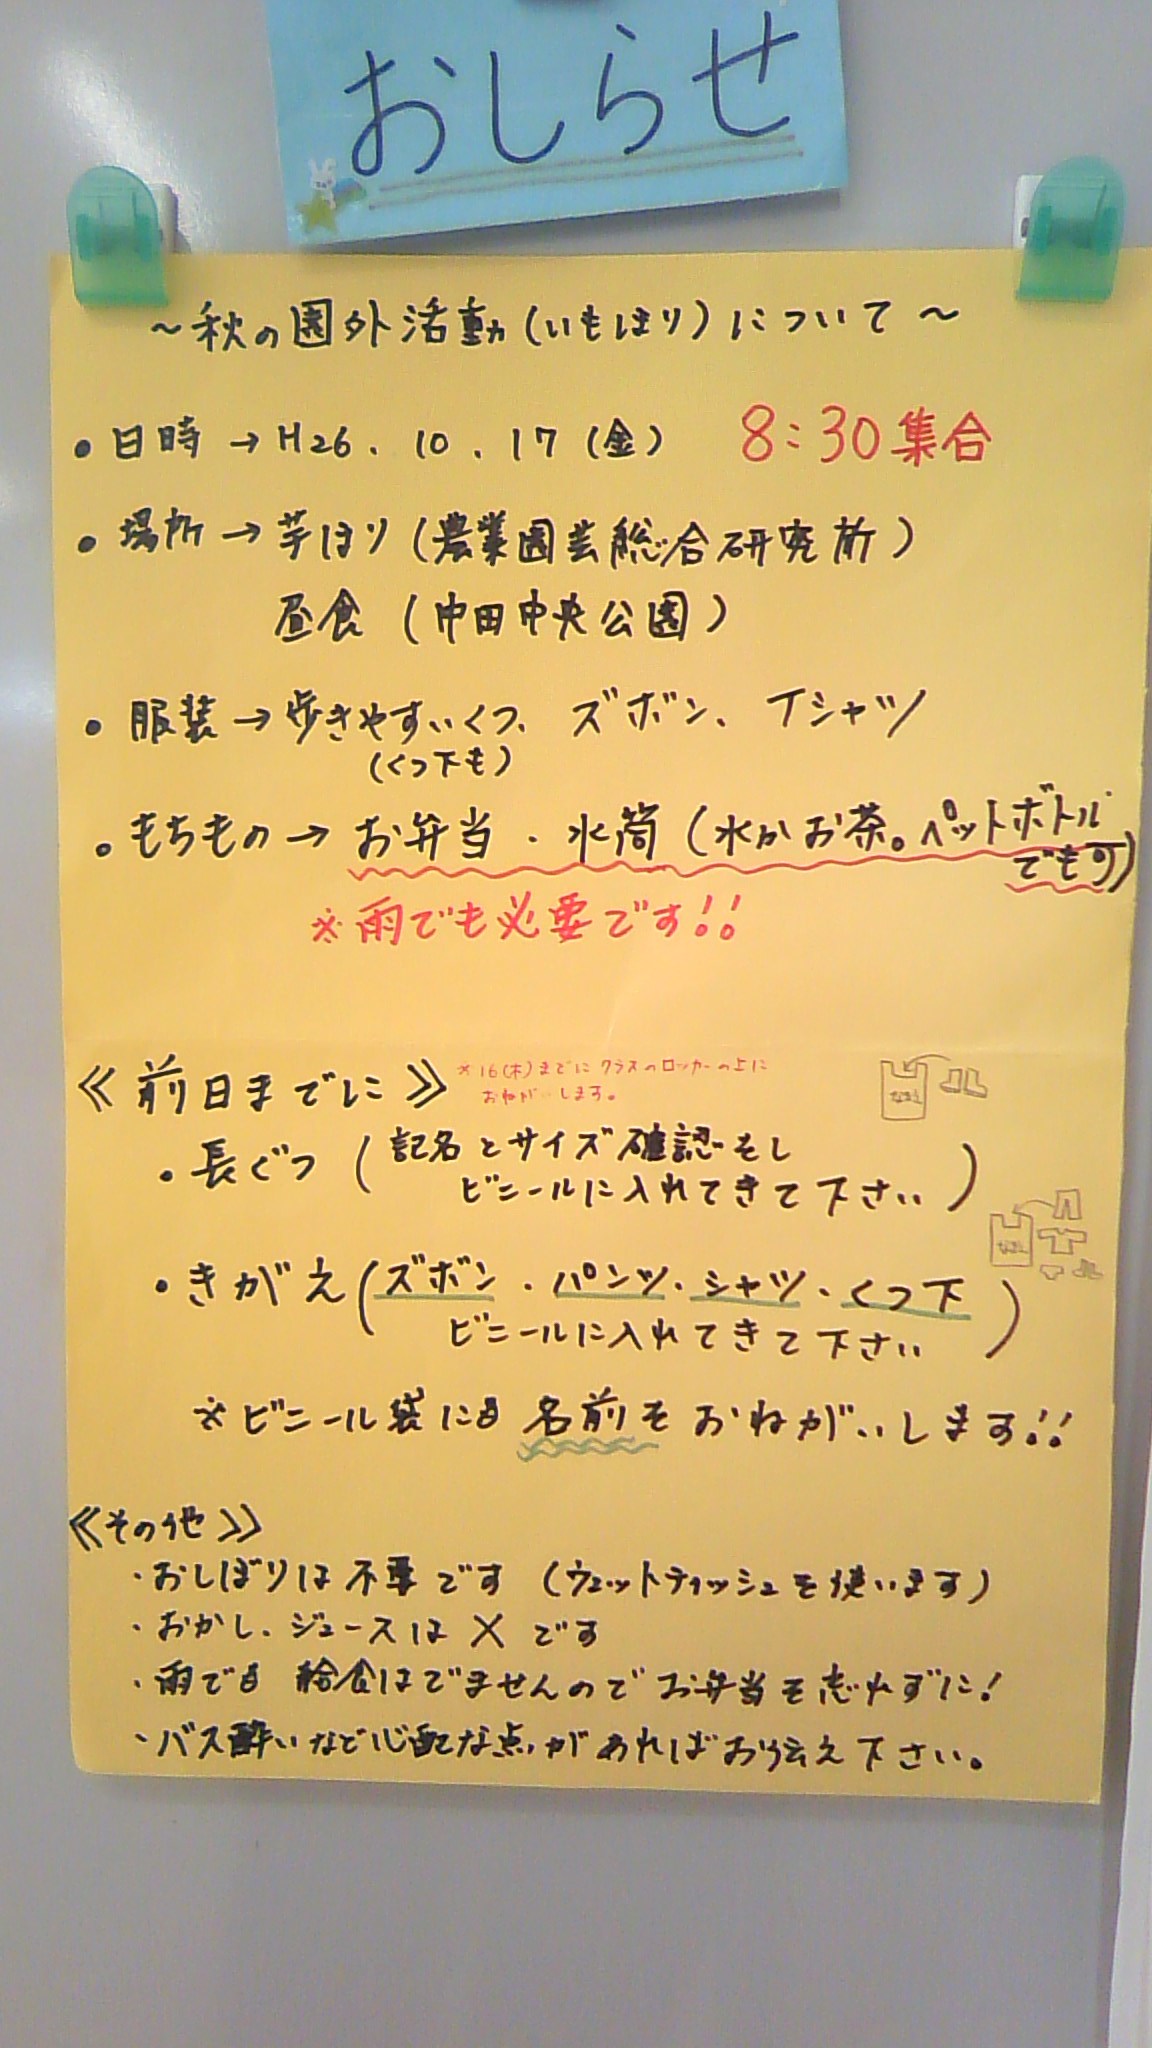 おしらせ
～秋の園外活動(いもほり)について～
・日時→H26.10.17(金) 8:30集合
・場所→芋ほり(農業園芸総合研究所)
昼食(中田中央公園)
・服装→歩きやすいくつ、ズボン、Tシャツ
(くつ下も)
・もちもの→お弁当・水筒(水かお茶。ペットボトル
でも可)
※雨でも必要です!!
≪前日までに≫ ※16(木)までにクラスのロッカーの上に
おねがいします。
・長ぐつ(記名とサイズ確認をし
ビニールに入れてきて下さい)
・きがえ(ズボン・パンツ・シャツ・くつ下
ビニールに入れてきて下さい)
※ビニール袋にも名前をおねがいします!!
≪その他≫
・おしぼりは不要です(ウェットティッシュを使います)
・おかし、ジュースは×です
・雨でも給食はでませんのでお弁当を忘れずに!
・バス酔いなど心配な点があればお伝え下さい。